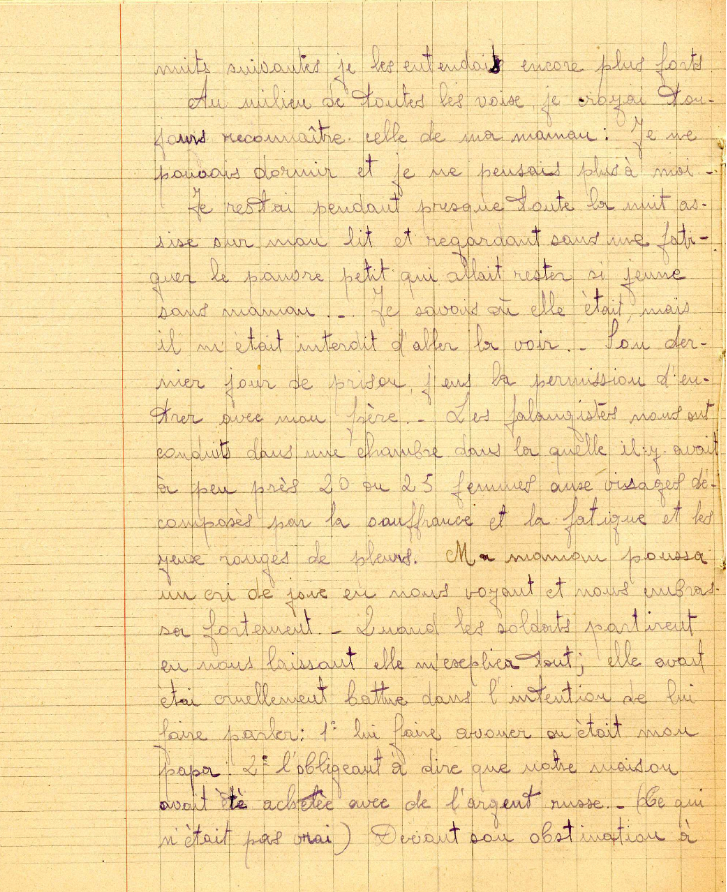 nuits suivantes je les entendais encore plus forts
Au milieu de toutes les voise, je croyai tou-
jours reconnaître celle de ma maman : Je ne
pouvais dormir et je ne pensais plus à moi -
Je restai pendant presque toute la nuit as-
sise sur mon lit et regardant sans me fati-
guer le pauvre petit qui allait rester si jeune
sans maman ... Je savais où elle était, mais
il m'était interdit d'aller la voir .. Son der-
nier jour de prison, j'eus la permission d'en-
trer avec mon père. - Les falangistes nous ont
conduits dans une chambre dans la quelle il y avait
à peu près 20 ou 25 femmes aux visages dé-
composés par la souffrance et la fatigue et les
yeux rouges de pleurs. Ma maman poussa
un cri de joie en nous voyant et nous embras-
sa fortement. - Quand les soldats partirent
en nous laissant elle m'explica tout ; elle avait
étai cruellement battue dans l'intention de lui
faire parler : 1° lui faire avouer ou était mon
papa. 2° l'obligeant à dire que notre maison
avait été achetée avec de l'argent russe. - (Ce qui
n'était pas vrai) Devant son obstination à